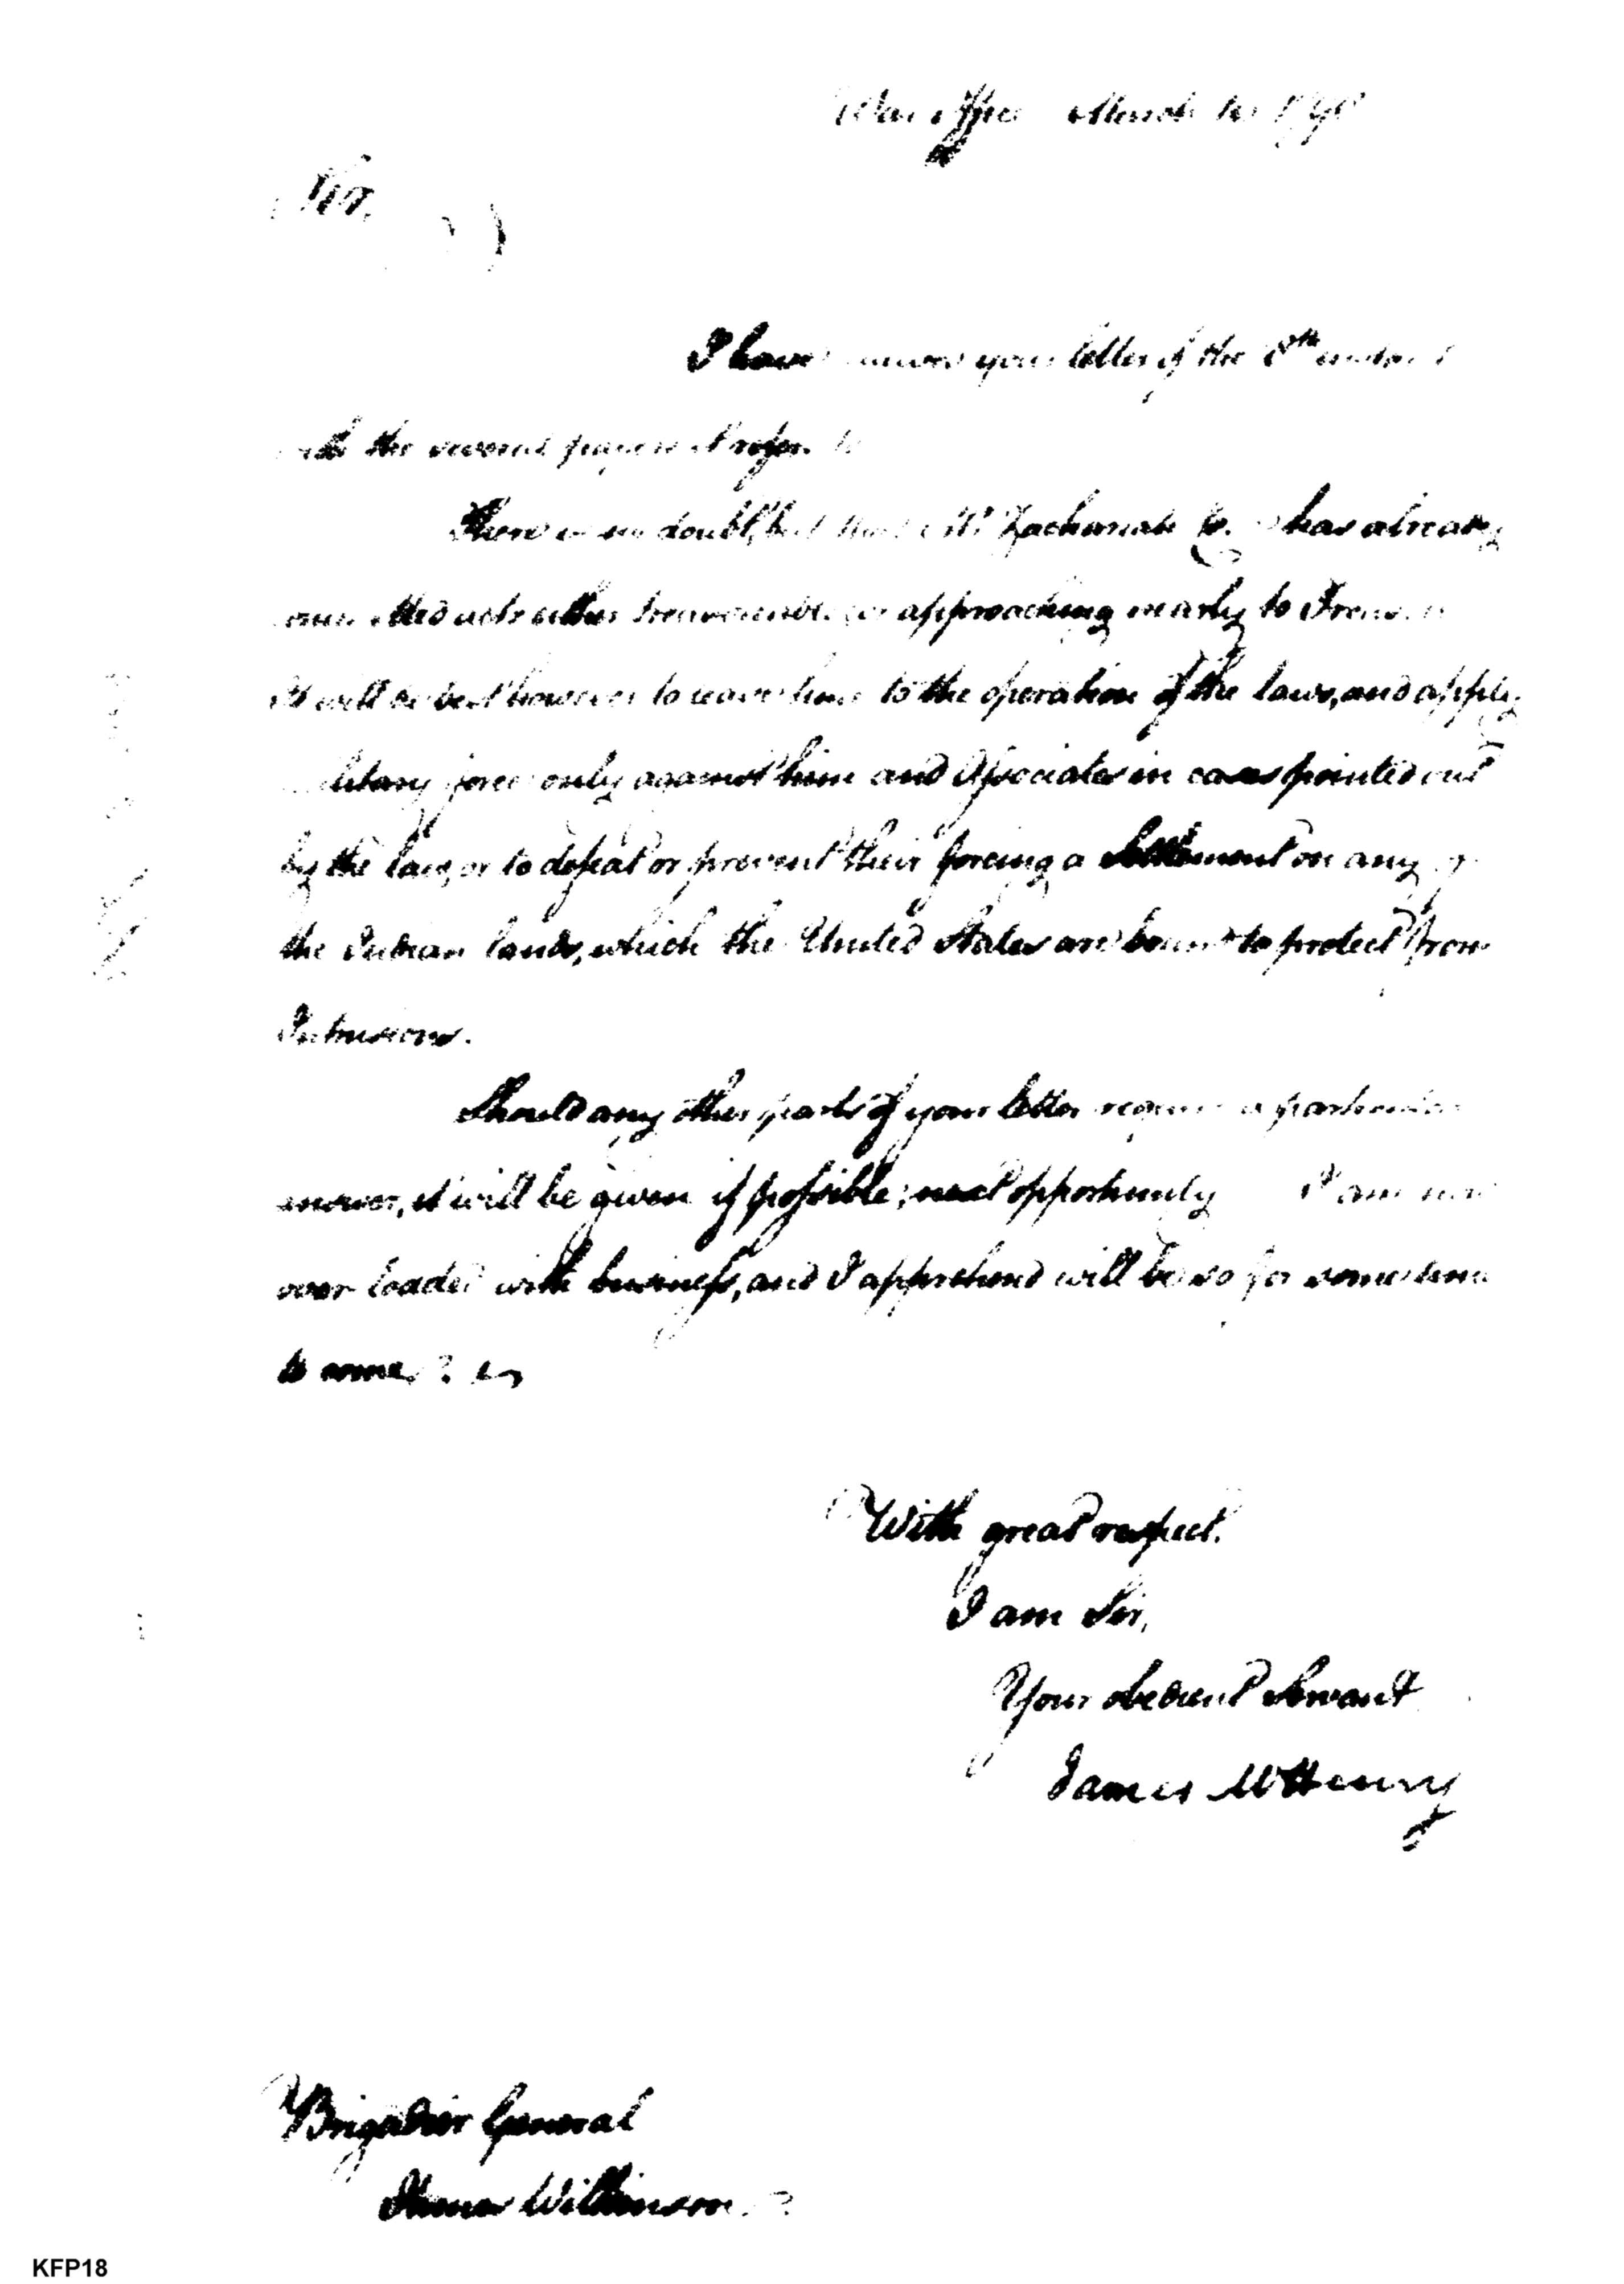 War Office March
Sir,
I have your letter of the 8th
the several papers it refers to
There is no doubt, but that Mr Zachariah has already
acts either treasonable or approaching nearly to
It will be best however to leave him to the operation of the laws, and apply
force only against him and Associates in cases pointed out
by the law, or to defeat or prevent their forcing a Settlement on any of
the Indian lands, which the United States are bound to protect from
Intrusions.
Should any other parts of your letter require a particular
answer, it will be given if possible; next opportunity I am now
over loaded with business, and I apprehend will be so for some time
to come.
With great respect.
I am Sir,
Your obedient Servant
James McHenry
Brigadier General
Wilkinson
KFP18